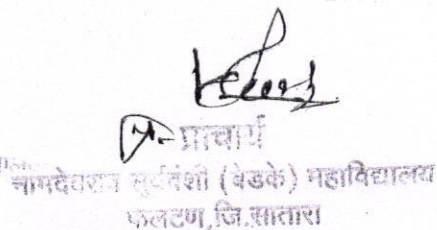 प्र-प्राचार्य
नामदेवराव सूर्यवंशी (बेडके) महाविद्यालय
फलटण,जि.सातारा